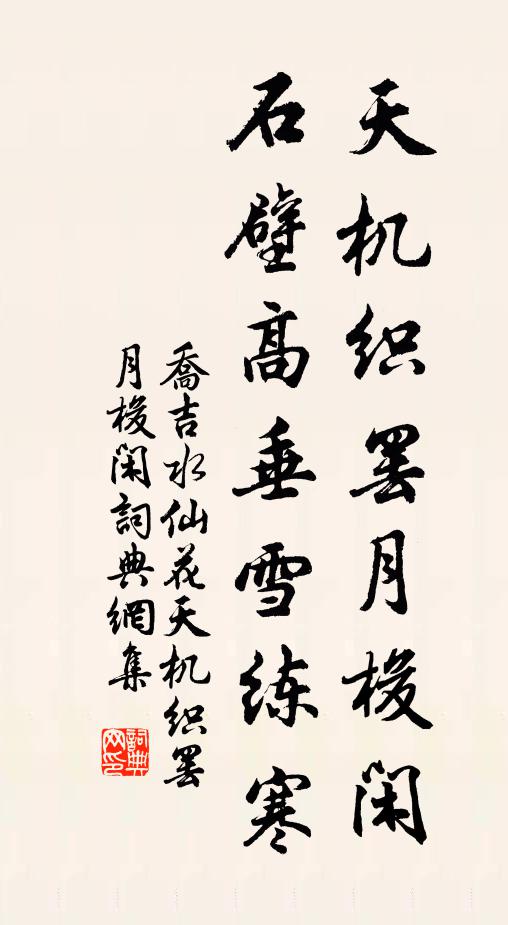 天机织罢月梭闲
石壁高垂雪练寒
喬吉水仙花天机织罢
月梭闲詞典網集
詞典网印